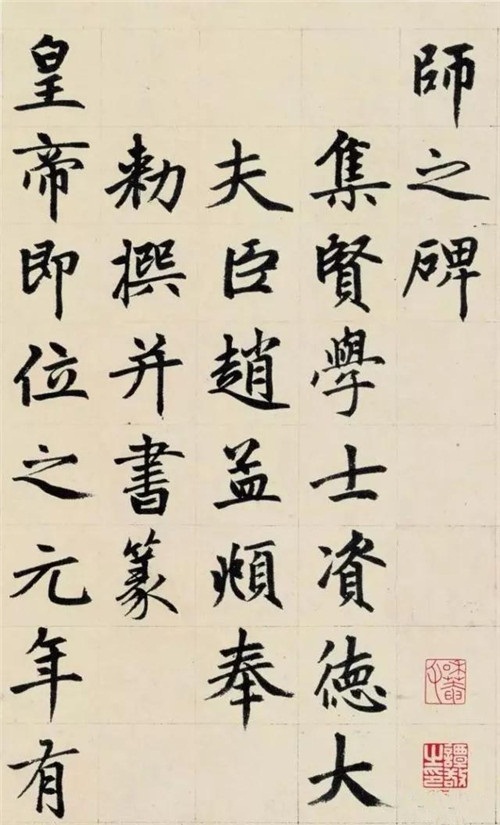 師之碑
集賢學士資德大
夫臣趙孟頫奉
勑撰并書篆
皇帝即位之元年有
譚敬之印